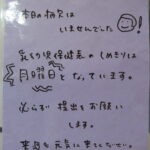 本日の揃欠は
いませんでした
健康保健表のしめきりは
月曜日となっています。
必らず提出をお願い
します。
来週も元気に来てください。